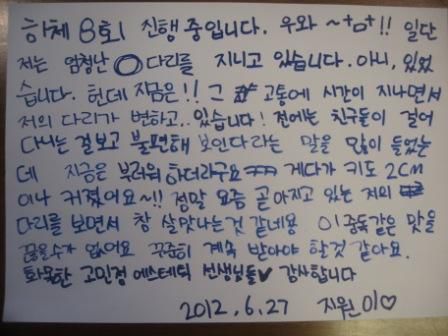 하체 8회 진행 중입니다. 우와 ~+ㅁ+!! 일단
저는 엄청난 O다리를 지니고 있습니다. 아니, 있었
습니다. 헌데 지금은!! 그 고통에 시간이 지나면서
저의 다리가 변하고.. 있습니다! 전에는 친구들이 걸어
다니는 걸보고 불편해 보인다라는 말을 많이 들었는
데 지금은 부러워 하더라구요 게다가 키도 2cm
이나 커졌어요~!! 정말 요즘 곧아지고 있는 저의
다리를 보면서 참 살맛나는것 같네용 이 중독같은 맛을
끊을수가 없어요 꾸준히 계속 받아야 할것 같아요.
화목한 고민정 에스테틱 선생님들♥ 감사합니다
2012.6.27 지원이♡